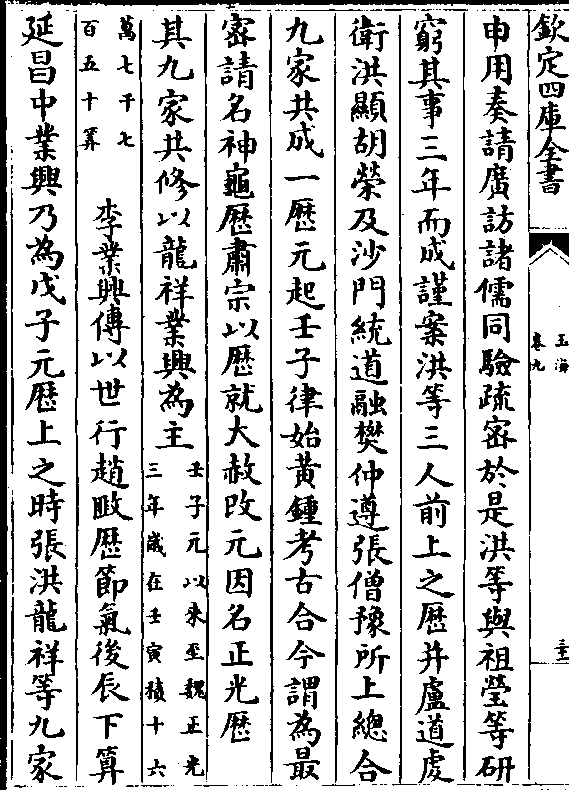 欽定四庫全書
玉海
卷九
三十三
申用奏請廣訪諸儒同驗疏密於是洪等與祖瑩等研
窮其事三年而成謹案洪等三人前上之歷并盧道虔
衛洪顯胡榮及沙門統道融樊仲遵張僧豫所上總合
九家共成一歷元起壬子律始黃鍾考古合今謂為最
密請名神龜歷肅宗以歷就大赦改元因名正光歷
其九家共修以龍祥業興為主
壬子元以來至魏正光
三年歲在壬寅積十六
萬七千七
百五十筭
李業興傳以世行趙𢾺歷節氣後辰下算
延昌中業興乃為戊子元歷上之時張洪龍祥等九家